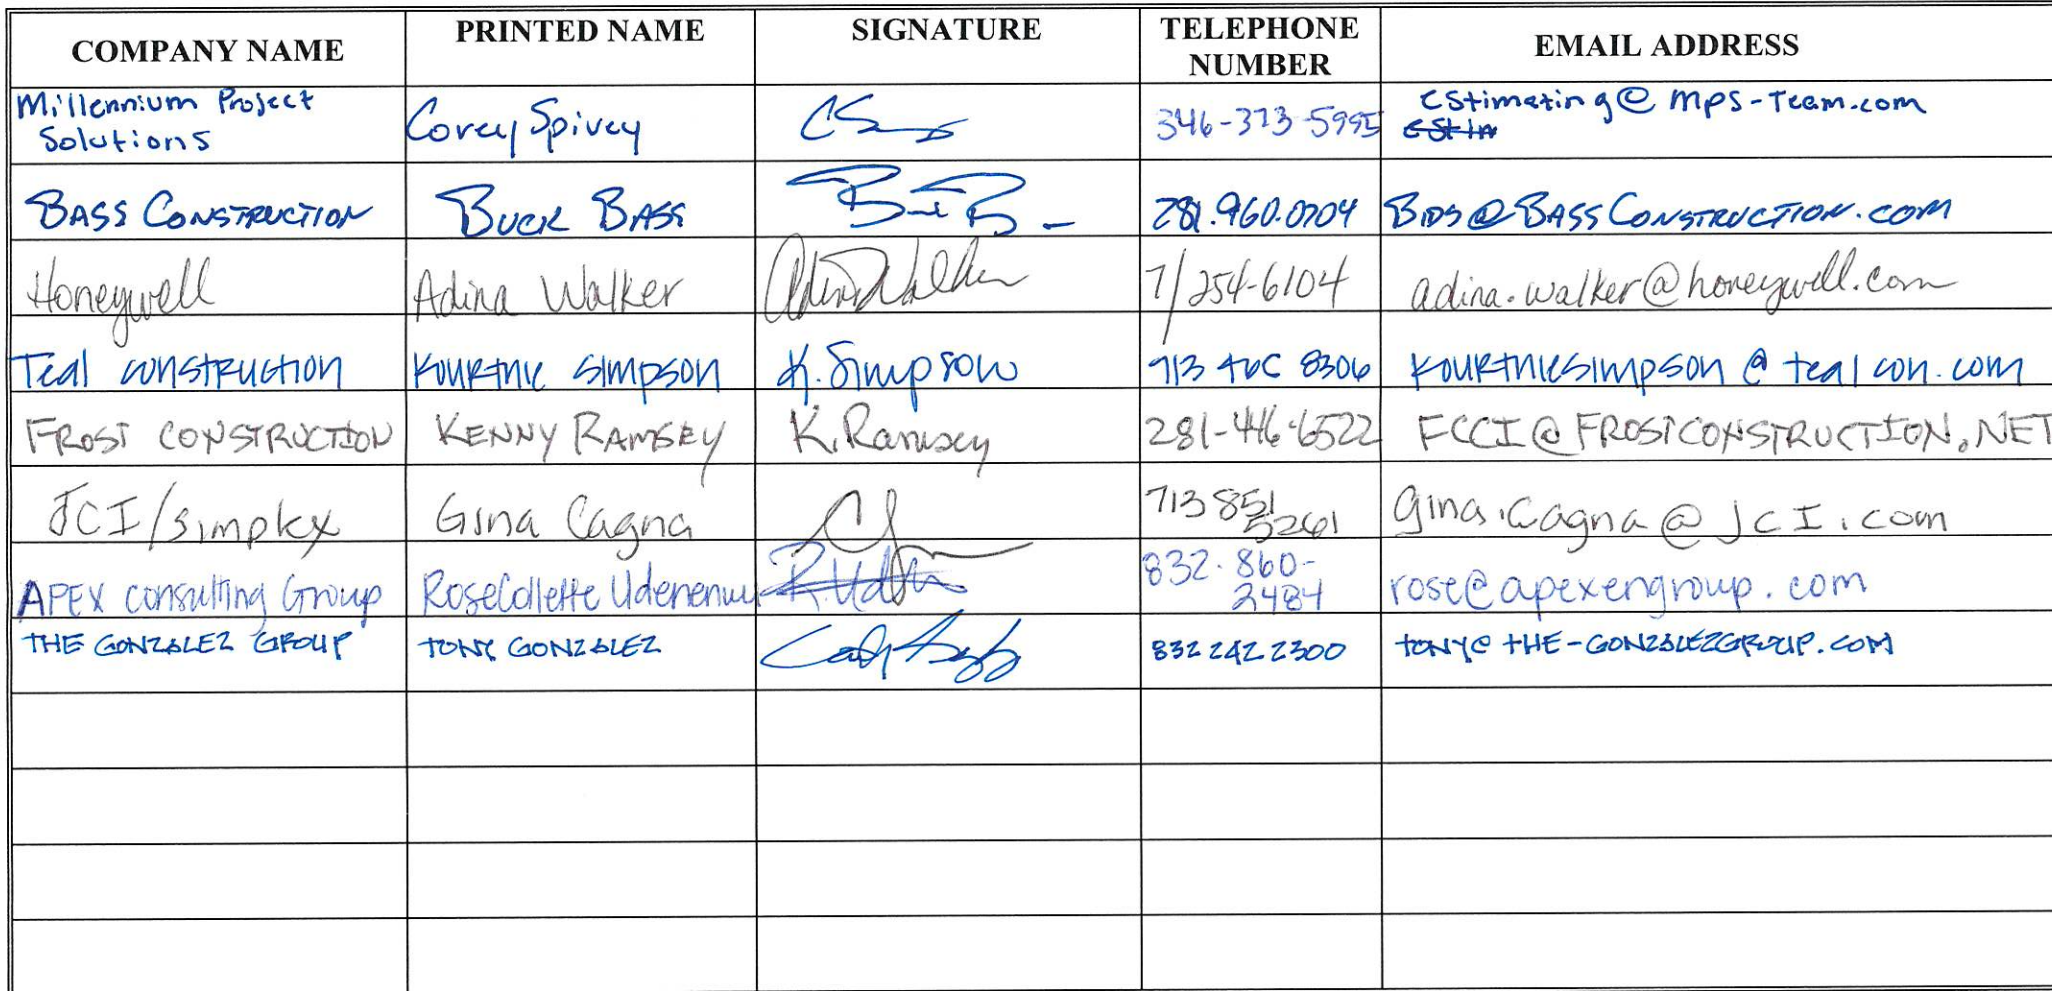 COMPANY NAME PRINTED NAME SIGNATURE TELEPHONE NUMBER EMAIL ADDRESS
Millennium Project Solutions Corey Spivey 346-373-5995 Estimating@mps-Team.com
BASS CONSTRUCTION BUCK BASS 281.960.0704 BIDS@BASSCONSTRUCTION.COM
Honeywell Adina Walker Adina Walker 7/254-6104 adina.walker@honeywell.com
Teal construction Kourtnie Simpson K. Simpson 713 8306 Kourtniesimpson@tealcon.com
FROST CONSTRUCTION KENNY RAMSEY K. Ramsey 281-446-6522 FCCI@FROSTCONSTRUCTION.NET
JCI/Simplex Gina Cagna 713 851 5261 gina.cagna@JCI.com
APEX consulting Group RoseCollette 832.860-2484 rose@apexengroup.com
THE GONZALEZ GROUP TONY GONZALEZ 832 242 2300 TONY@THE-GONZALEZGROUP.COM